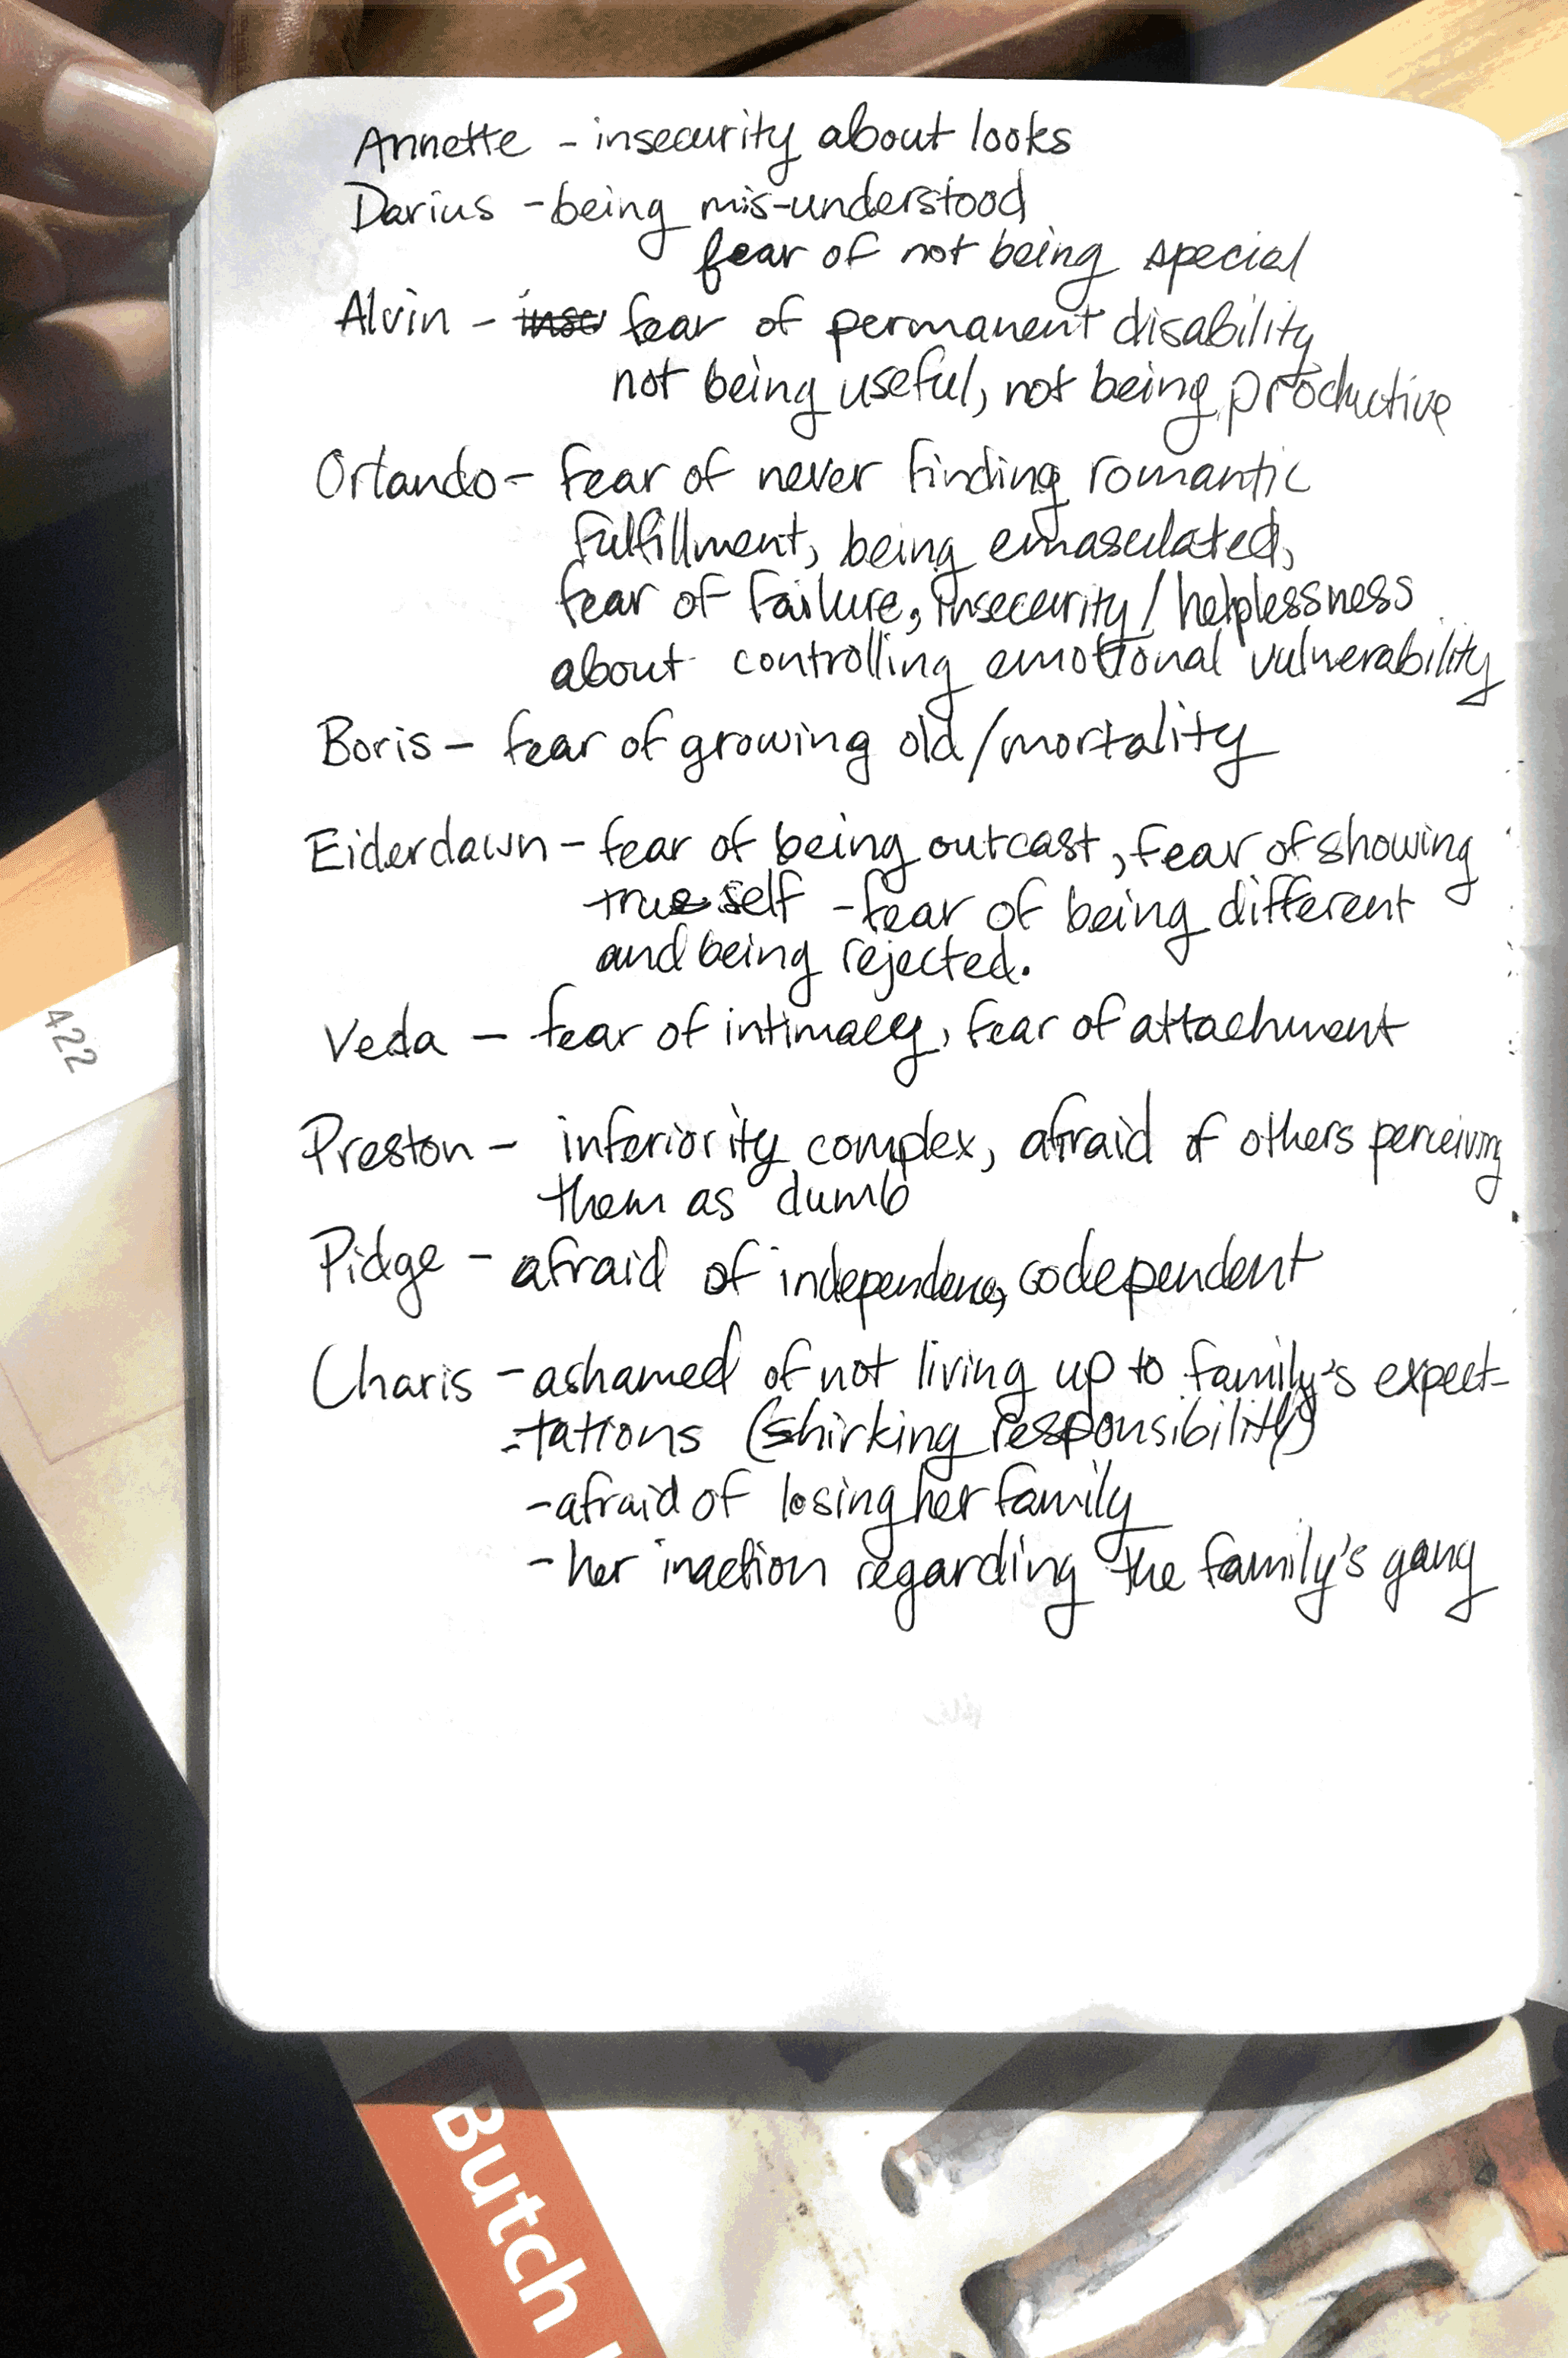 Annette - insecurity about looks
Darius - being mis-understood
fear of not being special
Alvin - insc fear of permanent disability
not being useful, not being productive
Orlando - fear of never finding romantic
fulfillment, being emasculated,
fear of failure, insecurity / helplessness
about controlling emotional vulnerability
Boris - fear of growing old/mortality
Eiderdawn - fear of being outcast, fear of showing
true self - fear of being different
and being rejected.
Veda - fear of intimacy, fear of attachment
Preston - inferiority complex, afraid of others perceiving
them as dumb
Pidge - afraid of independence, codependent
Charis - ashamed of not living up to family's expect-
-tations (shirking responsibility)
- afraid of losing her family
- her inaction regarding the family's gang
422
Butch